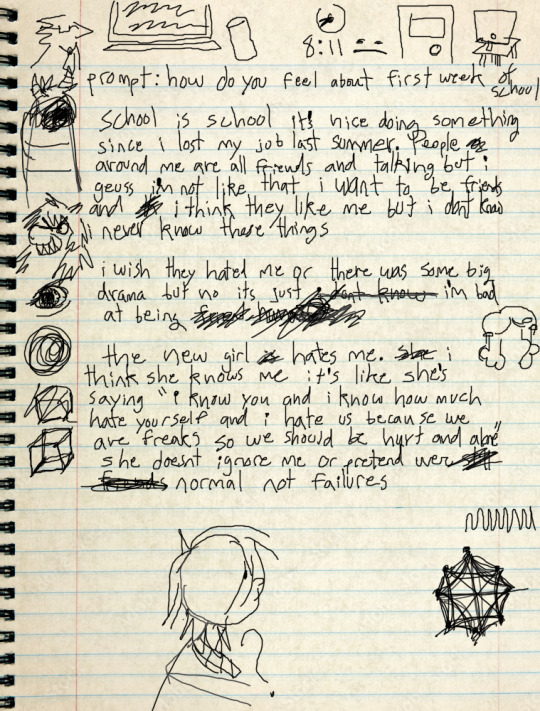 8:11
prompt: how do you feel about first week of school
school is school it's nice doing something
since i lost my job last summer. People
around me are all friends and talking but i
geuss im not like that i want to be friends
and i think they like me but i dont know
i never know these things
i wish they hated me or there was some big
drama but no its just i dont know i'm bad
at being
the new girl hates me. she i
think she knows me it's like she's
saying "i know you and i know how much
hate yourself and i hate us because we
are freaks so we should be hurt and alone"
she doesnt ignore me or pretend wer
friends normal not failures